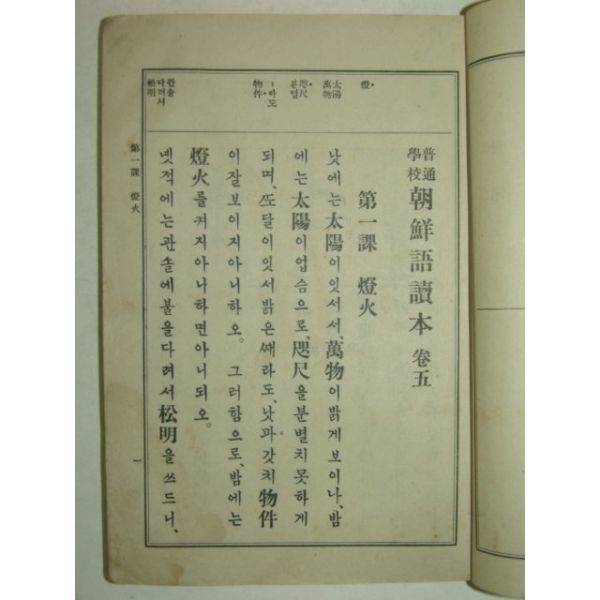 普通學校 朝鮮語讀本 卷五
第一課 燈火
낫에는太陽이잇서서、萬物이밝게보이나、밤
에는太陽이업슴으로、咫尺을分別치못하게
되며、ᄯ\u3000달이잇서밝은ᄯ\u3000라도、낫과갓치物件
이잘보이지아니하오。그러함으로、밤에는
燈火를켜지아니하면아니되오。
녯적에는관솔에불을다려서松明을쓰드니、
燈
太陽
萬物
咫尺
분별
ー라도
物件
관솔
다려서
松明
第一課 燈火
一